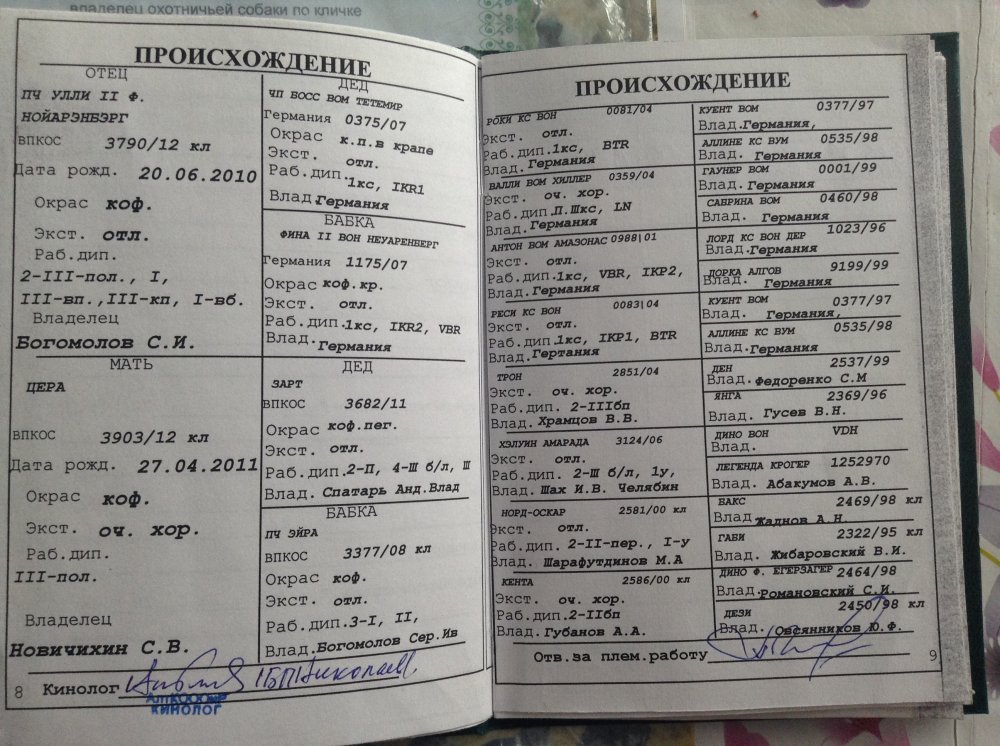 владелец охотничьей собаки по кличке
ПРОИСХОЖДЕНИЕ
ОТЕЦ
ПЧ УЛЛИ II Ф.
НОЙАРЭНБЭРГ
ВПКОС 3790/12 кл
Дата рожд. 20.06.2010
Окрас коф.
Экст. отл.
Раб.дип.
2-III-пол., I,
III-вп.,III-кп, I-вб.
Владелец
Богомолов С.И.
МАТЬ
ЦЕРА
ВПКОС 3903/12 кл
Дата рожд. 27.04.2011
Окрас коф.
Экст. оч. хор.
Раб.дип.
III-пол.
Владелец
Новичихин С.В.
ДЕД
ЧП БОСС ВОМ ТЕТЕМИР
Германия 0375/07
Окрас к.п.в крапе
Экст. отл.
Раб.дип.1кс, IKR1
Влад.Германия
БАБКА
ФИНА II ВОН НЕУАРЕНБЕРГ
Германия 1175/07
Окрас коф.кр.
Экст. отл.
Раб.дип.1кс, IKR2, VBR
Влад.Германия
ДЕД
ЗАРТ
ВПКОС 3682/11
Окрас коф.пег.
Экст. отл.
Раб.дип.2-П, 4-Ш б/л, Ш
Влад. Спатарь Анд.Влад
БАБКА
ПЧ ЭЙРА
ВПКОС 3377/08 кл
Окрас коф.
Экст. отл.
Раб.дип.3-I, II,
Влад.Богомолов Сер.Ив
8 Кинолог
КИНОЛОГ
ПРОИСХОЖДЕНИЕ
РОКИ КС ВОН 0081/04
Экст. отл.
Раб.дип.1кс, BTR
Влад.Германия
ВАЛЛИ ВОМ ХИЛЛЕР 0359/04
Экст. оч. хор.
Раб.дип.П.Шкс, LN
Влад.Германия
АНТОН ВОМ АМАЗОНАС 0988|01
Экст. отл.
Раб.дип.1кс, VBR, IKP2,
Влад.Германия
РЕСИ КС ВОН 0083|04
Экст. отл.
Раб.дип.1кс, IKP1, BTR
Влад.Гертания
ТРОН 2851/04
Экст. оч. хор.
Раб.дип. 2-IIIбп
Влад. Храмцов В.В.
ХЭЛУИН АМАРАДА 3124/06
Экст. отл.
Раб.дип. 2-Ш б/л, 1у,
Влад. Шах И.В. Челябин
НОРД-ОСКАР 2581/00 кл
Экст. отл.
Раб.дип. 2-II-пер., I-у
Влад. Шарафутдинов М.А
КЕНТА 2586/00 кл
Экст. оч. хор.
Раб.дип. 2-IIбп
Влад. Губанов А.А.
КУЕНТ ВОМ 0377/97
Влад.Германия,
АЛЛИНЕ КС ВУМ 0535/98
Влад. Германия
ГАУНЕР ВОМ 0001/99
Влад. Германия
САБРИНА ВОМ 0460/98
Влад. Германия
ЛОРД КС ВОН ДЕР 1023/96
Влад.Германия
ЛОРКА АЛГОВ 9199/99
Влад. Германия
КУЕНТ ВОМ 0377/97
Влад. Германия,
АЛЛИНЕ КС ВУМ 0535/98
Влад.Германия
ДЕН 2537/99
Влад.Федоренко С.М
ЯНГА 2369/96
Влад. Гусев В.Н.
ДИНО ВОН VDH
Влад.
ЛЕГЕНДА КРОГЕР 1252970
Влад. Абакумов А.В.
ВАКС 2469/98 кл
Влад.Жаднов А.Н.
ГАБИ 2322/95 кл
Влад. Жибаровский В.И.
ДИНО Ф. ЕГЕРЗАГЕР 2464/98
Влад.Романовский С.И.
ДЕЗИ 2450/98 кл
Влад. Овсянников Ю.Ф.
Отв.за плем.работу
9